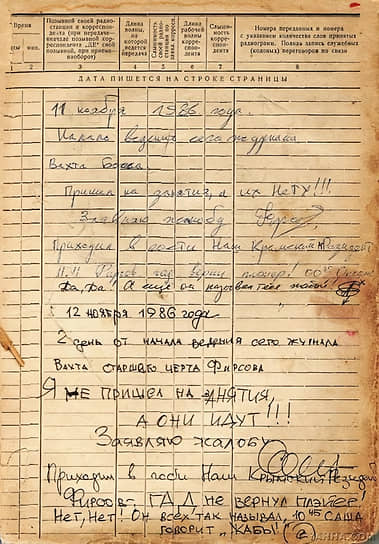 Время
час.
мин.
Позывной своей радио-
станции и корреспон-
дента (при передаче-
вначале позывной кор-
респондента „ДЕ“ свой
позывной, при приеме-
наоборот)
Длина
волны,
на
которой
ведется
передача
Длина
рабочей
волны
корреспон-
дента
Слышимость
корреспон-
дента
Номера переданных и номера
с указанием количества слов принятых
радиограмм. Полная запись служебных
(кодовых) переговоров по связи
1 2 3 4 5 6 7 8
ДАТА ПИШЕТСЯ НА СТРОКЕ СТРАНИЦЫ
11 ноября 1986 года.
Начало ведения сего журнала.
Вахта
Пришел на занятия, а их НЕТУ!!!
Заявляю жалобу
Приходил в гости Наш Крымский Резидент
гад верни плэйер!
Да, Да! А ещё он
12 ноября 1986 года
2 день от начала ведения сего журнала
Вахта старшего черта Фирсова
Я НЕ ПРИШЕЛ НА ЗАНЯТИЯ,
А ОНИ ИДУТ!!!
Заявляю жалобу
Приходил в гости Наш Крымский Резидент
Фирсов- ГАД, не вернул ПЛЭЙЕР!
Нет, Нет! Он всех так называл, 10 45 Саша
говорит „ЖАБЫ“